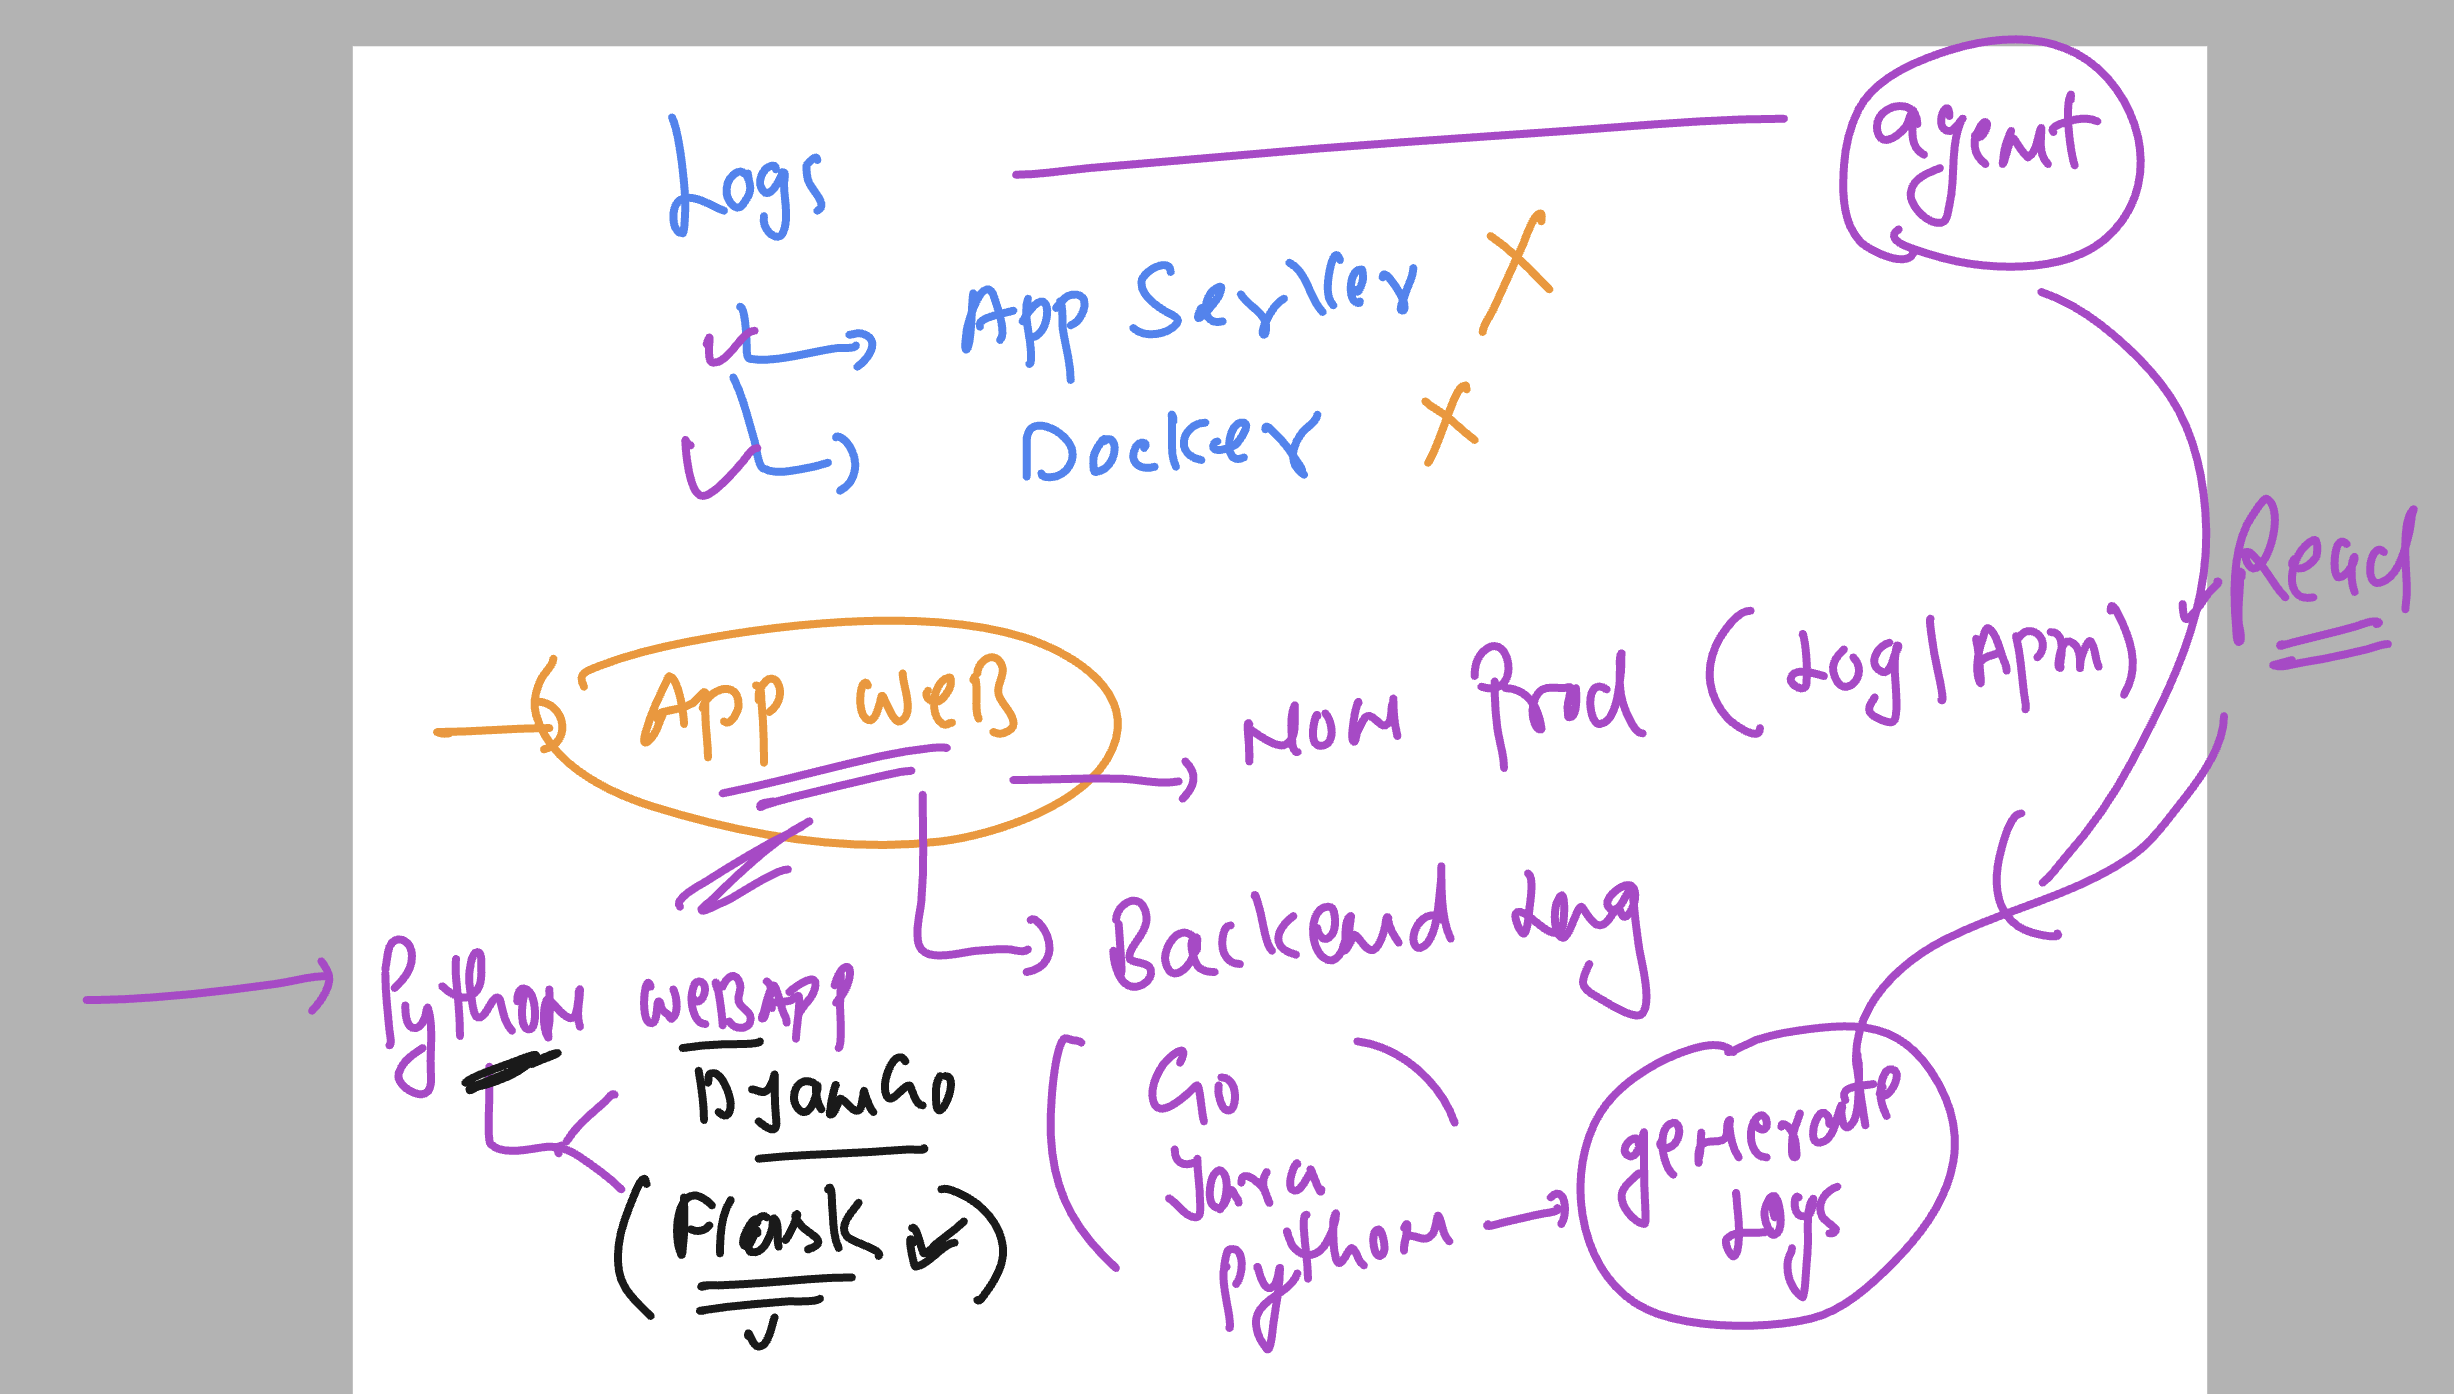 Logs
agent
App Server X
Docker X
Read
App Web
Non Prod (Log | APM)
Backend Lang
Python WebApp
DjanGo
(Flask)
Go
Java
Python
generate
Logs